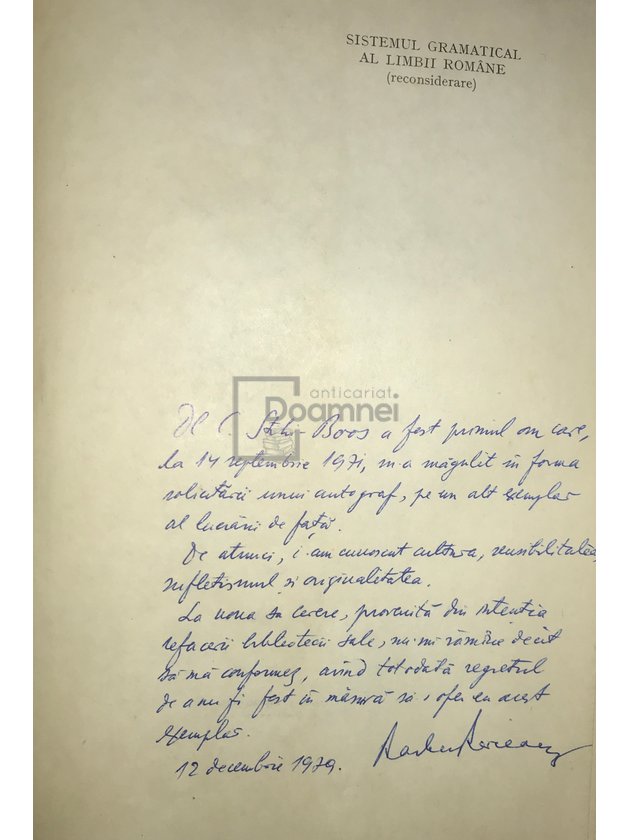 SISTEMUL GRAMATICAL
AL LIMBII ROMÂNE
(reconsiderare)
anticariat
Doamnei
Dl C. Boos a fost primul om care,
la 14 septembrie 1971, m-a măgulit în forma
solicitării unui autograf, pe un alt exemplar
al lucrării de față.
De atunci, i-am cunoscut cultura, sensibilitatea,
sufletismul și originalitatea.
La noua sa cerere, provenită din intenția
refacerii bibliotecii sale, nu-mi rămîne decît
să mă conformez, avînd totodată regretul
de a nu fi fost în măsură să-i ofer eu acest
exemplar.
12 decembrie 1979.